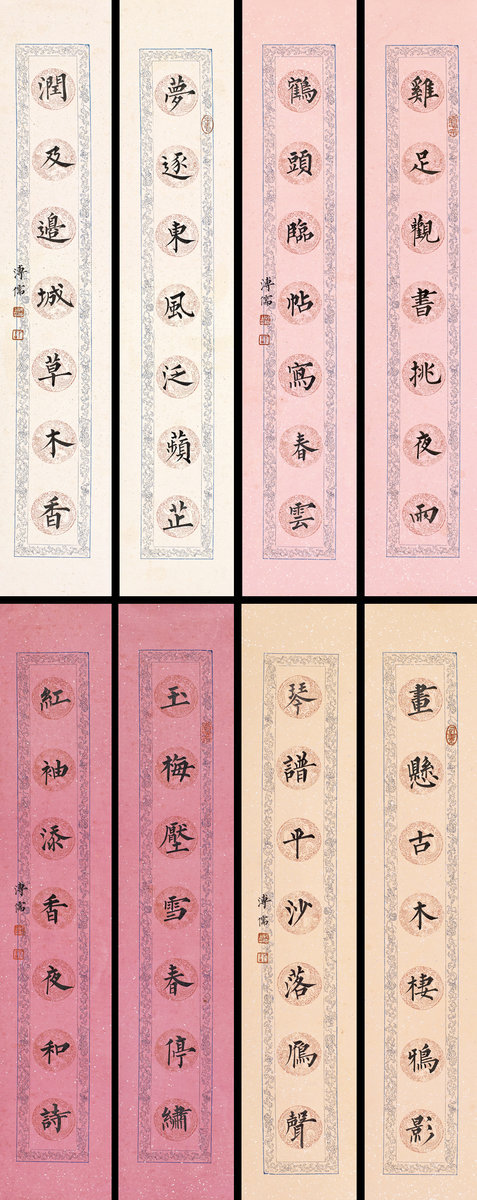 雞足觀書挑夜雨
鶴頭臨帖寫春雲
溥儒
夢逐東風泛蘋芷
潤及邊城草木香
溥儒
畫懸古木棲鴉影
琴譜平沙落鴈聲
溥儒
玉梅壓雪春停繡
紅袖添香夜和詩
溥儒